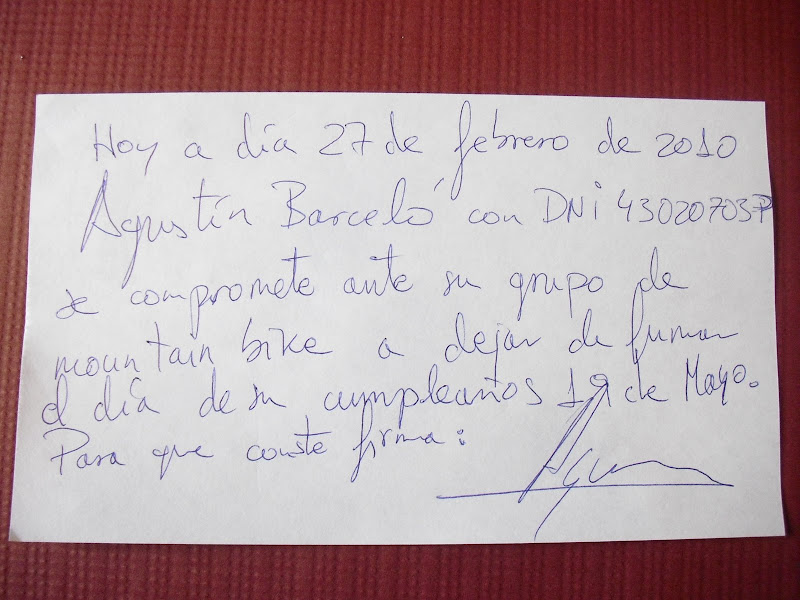 Hoy a día 27 de febrero de 2010
Agustín Barceló con DNi 43020703P
se compromete ante su grupo de
mountain bike a dejar de fumar
el día de su cumpleaños 19 de Mayo.
Para que conste firma:
Agu